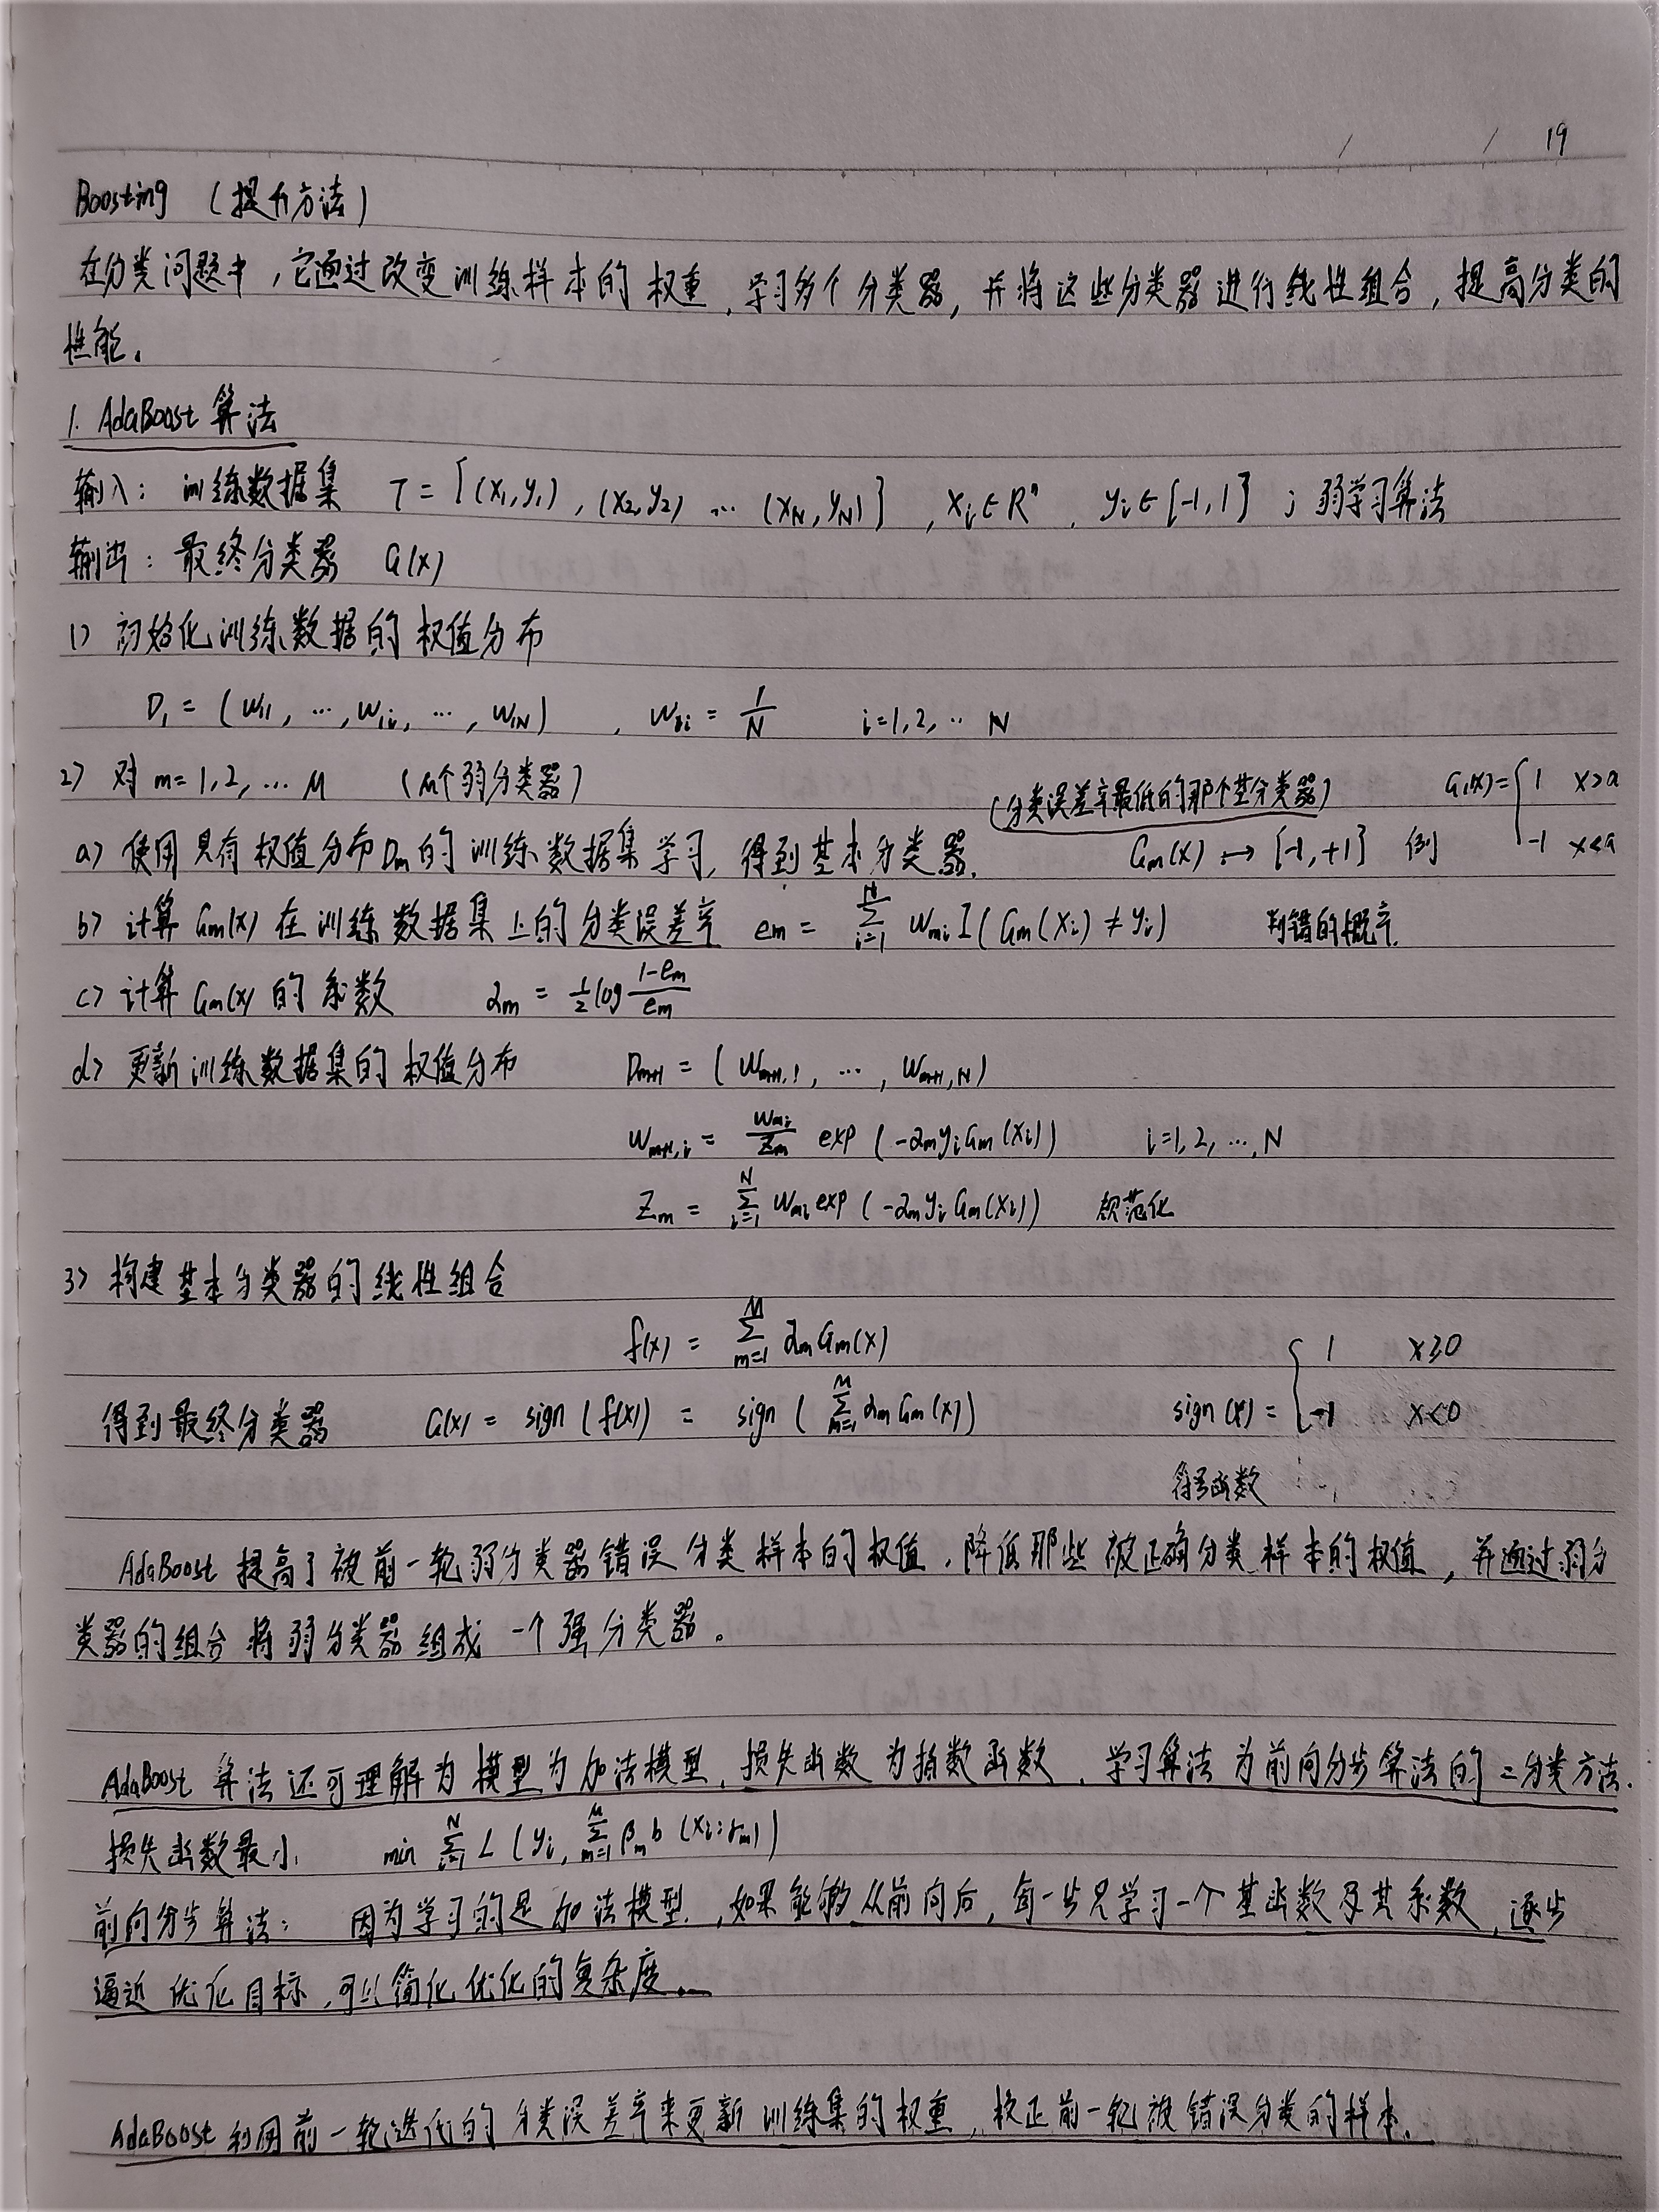 19
Boosting （提升方法）
在分类问题中，它通过改变训练样本的权重，学习多个分类器，并将这些分类器进行线性组合，提高分类的
性能。
1. AdaBoost 算法
输入： 训练数据集 T = {(x₁,y₁), (x₂,y₂) … (x_N,y_N)}, xᵢ∈Rⁿ, yᵢ∈{-1,1} ; 弱学习算法
输出：最终分类器 G(x)
1) 初始化训练数据的权值分布
D₁ = (w₁₁, …, w₁ᵢ, …, w₁N) , w₁ᵢ = 1/N i=1,2,… N
2) 对 m=1,2,… M （M个弱分类器）
（分类误差率最低的那个基分类器） G₁(x)={1 x>a
a) 使用具有权值分布Dm的训练数据集学习, 得到基本分类器. Gm(x) → {-1,+1} 例 -1 x<a
b) 计算Gm(x)在训练数据集上的分类误差率 em = Σ_{i=1}^{N} wmi I(Gm(xi) ≠ yi) 判错的概率.
c) 计算Gm(x)的系数 αm = ½ log (1-em)/em
d) 更新训练数据集的权值分布 Dm+1 = (wm+1,1, …, wm+1,N)
wm+1,i = wmi/Zm exp(-αm yi Gm(xi)) i=1,2,…,N
Zm = Σ_{i=1}^{N} wmi exp(-αm yi Gm(xi)) 规范化
3) 构建基本分类器的线性组合
f(x) = Σ_{m=1}^{M} αm Gm(x) { 1 x≥0
得到最终分类器 G(x) = sign(f(x)) = sign(Σ_{m=1}^{M} αm Gm(x)) sign(x) = -1 x<0
符号函数
AdaBoost 提高了被前一轮弱分类器错误分类样本的权值，降低那些被正确分类样本的权值，并通过弱分
类器的组合将弱分类器组成一个强分类器。
AdaBoost 算法还可理解为模型为加法模型，损失函数为指数函数，学习算法为前向分步算法的二分类方法.
损失函数最小 min Σ_{i=1}^{N} L(yi, Σ_{m=1}^{M} βm b(xi;γm))
前向分步算法： 因为学习的是加法模型，如果能够从前向后，每一步只学习一个基函数及其系数，逐步
逼近优化目标，可以简化优化的复杂度.
AdaBoost 利用前一轮迭代的分类误差率来更新训练集的权重，校正前一轮被错误分类的样本.